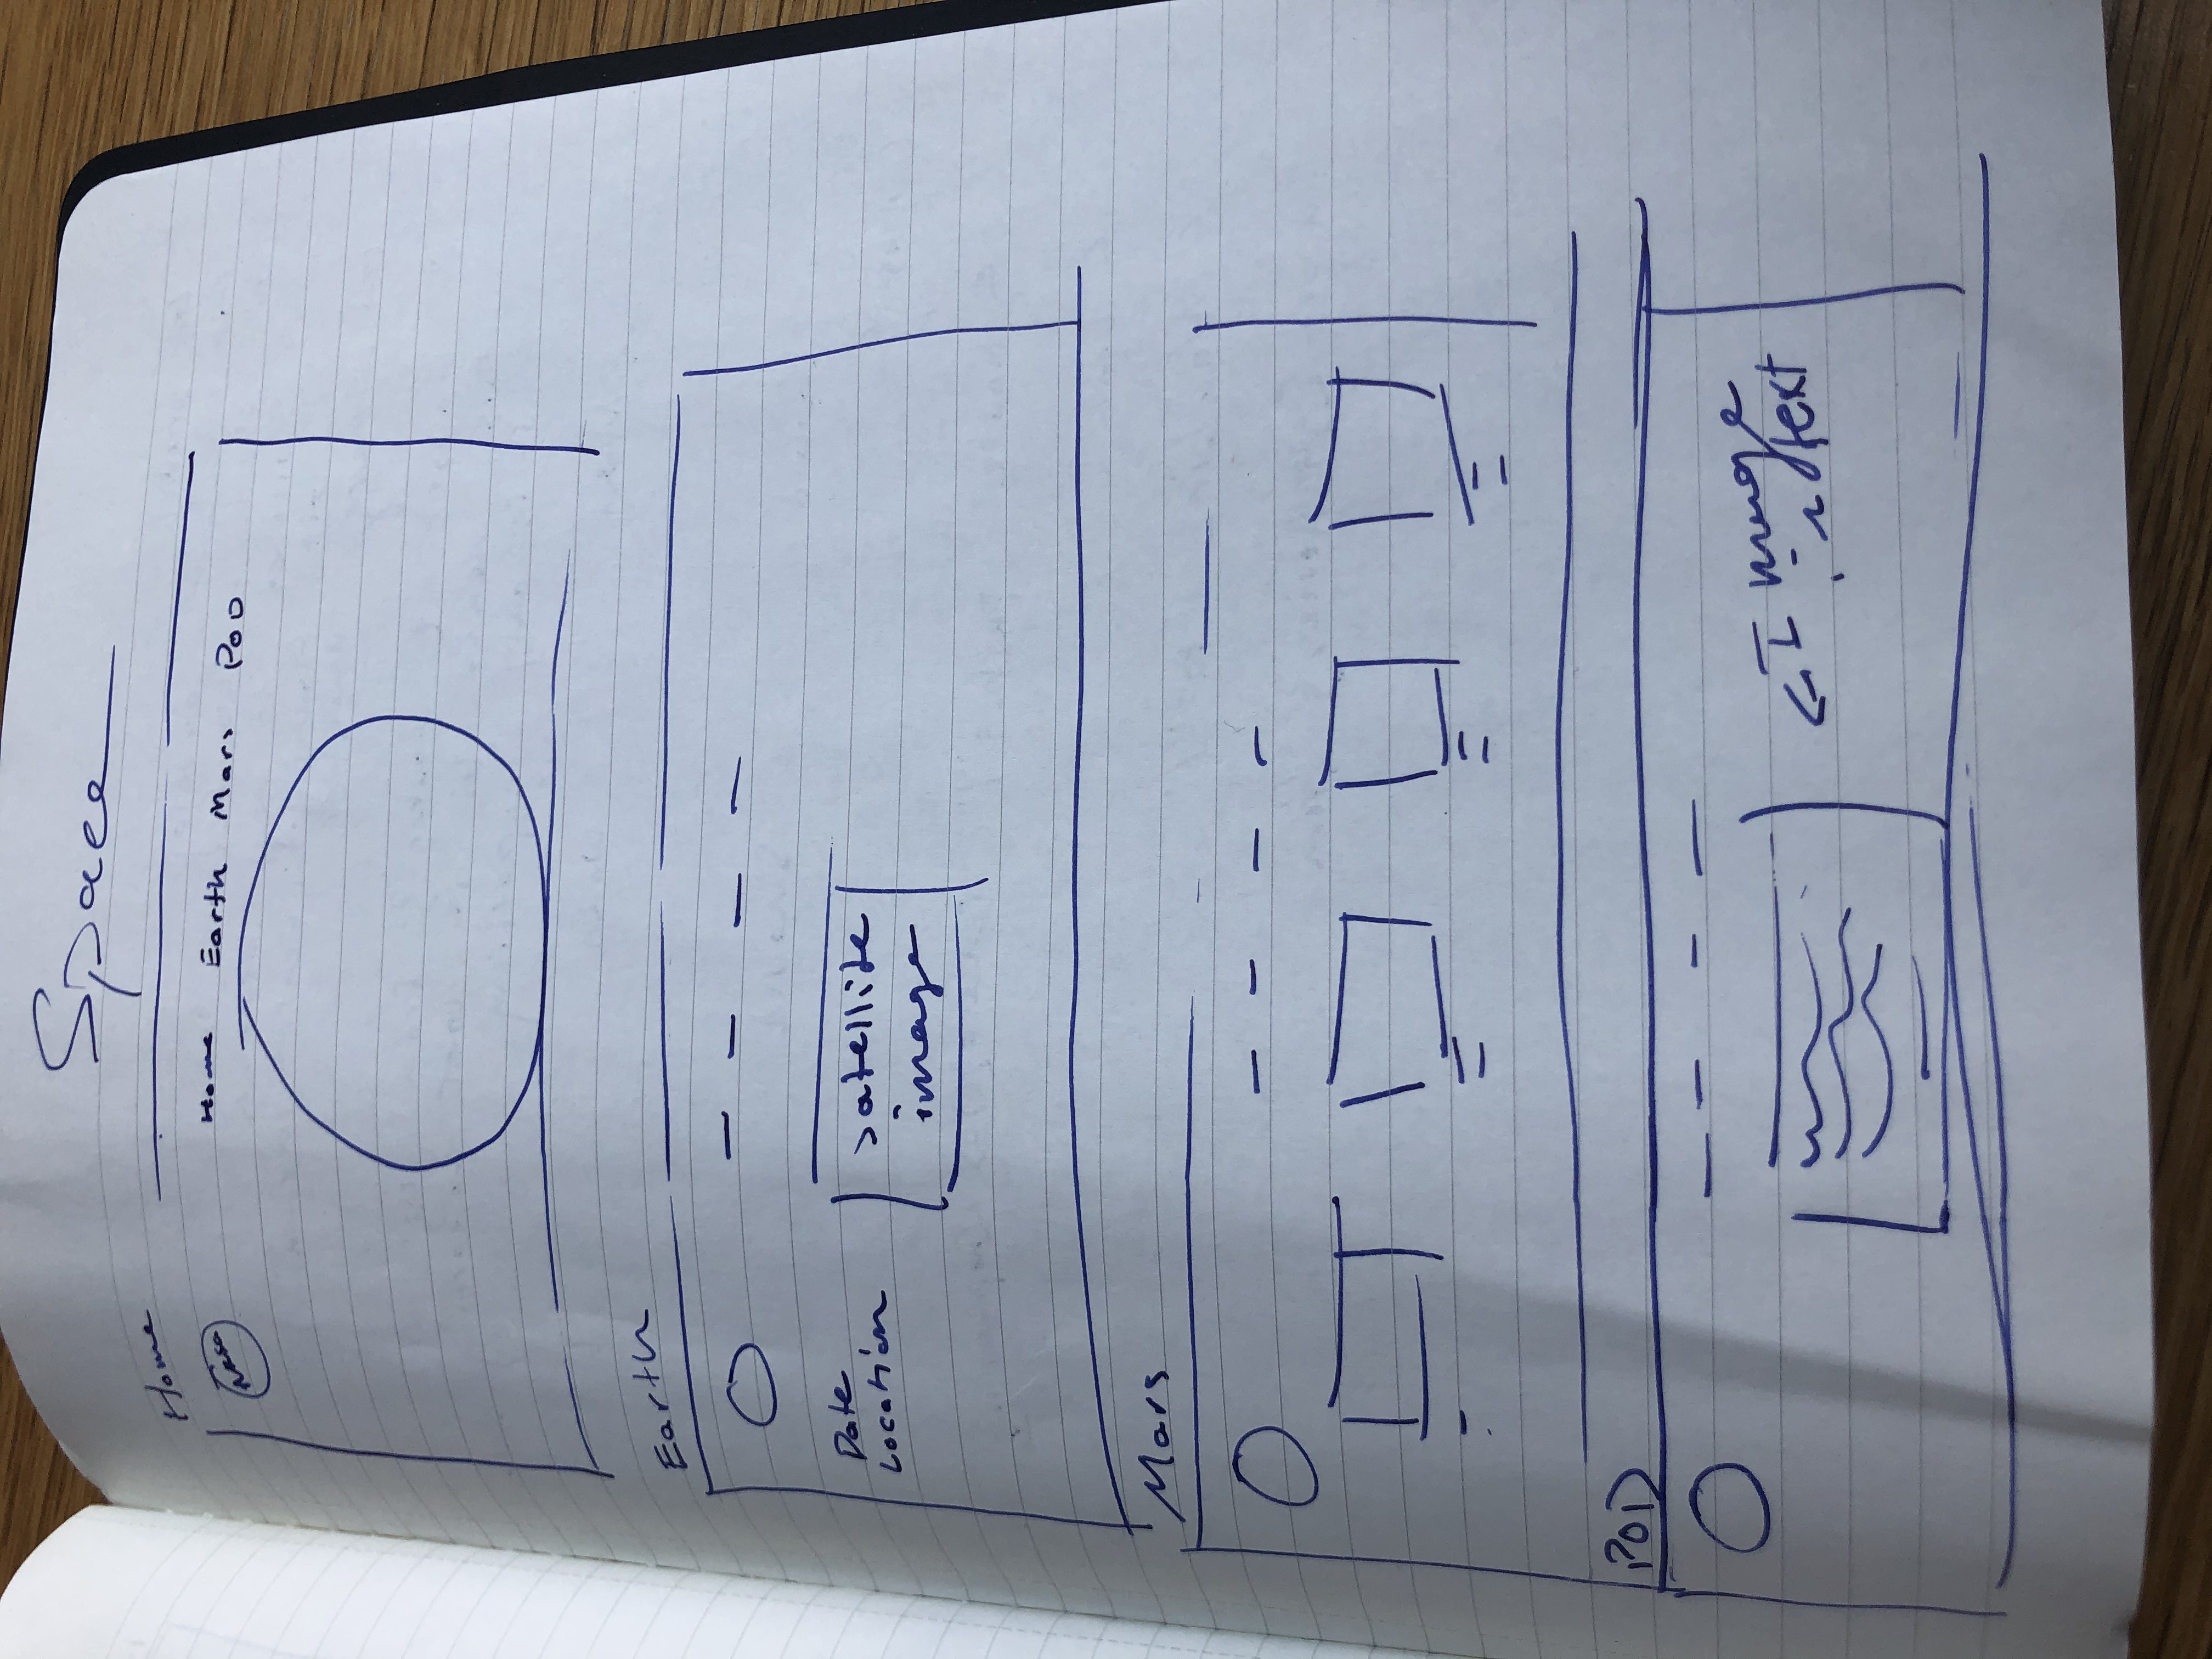 Space
Home
Nasa
Home Earth Mars POD
Earth
Date
Location
satellite
image
Mars
POD
Image
text